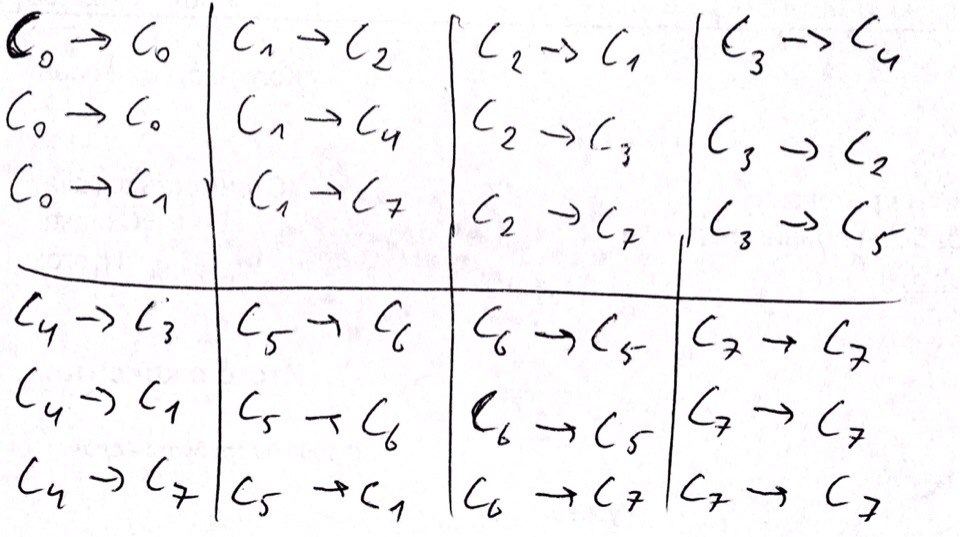 C₀ → C₀ | C₁ → C₂ | C₂ → C₁ | C₃ → C₄
C₀ → C₀ | C₁ → C₄ | C₂ → C₃ | C₃ → C₂
C₀ → C₁ | C₁ → C₇ | C₂ → C₇ | C₃ → C₅
C₄ → C₃ | C₅ → C₆ | C₆ → C₅ | C₇ → C₇
C₄ → C₁ | C₅ → C₆ | C₆ → C₅ | C₇ → C₇
C₄ → C₇ | C₅ → C₁ | C₆ → C₇ | C₇ → C₇